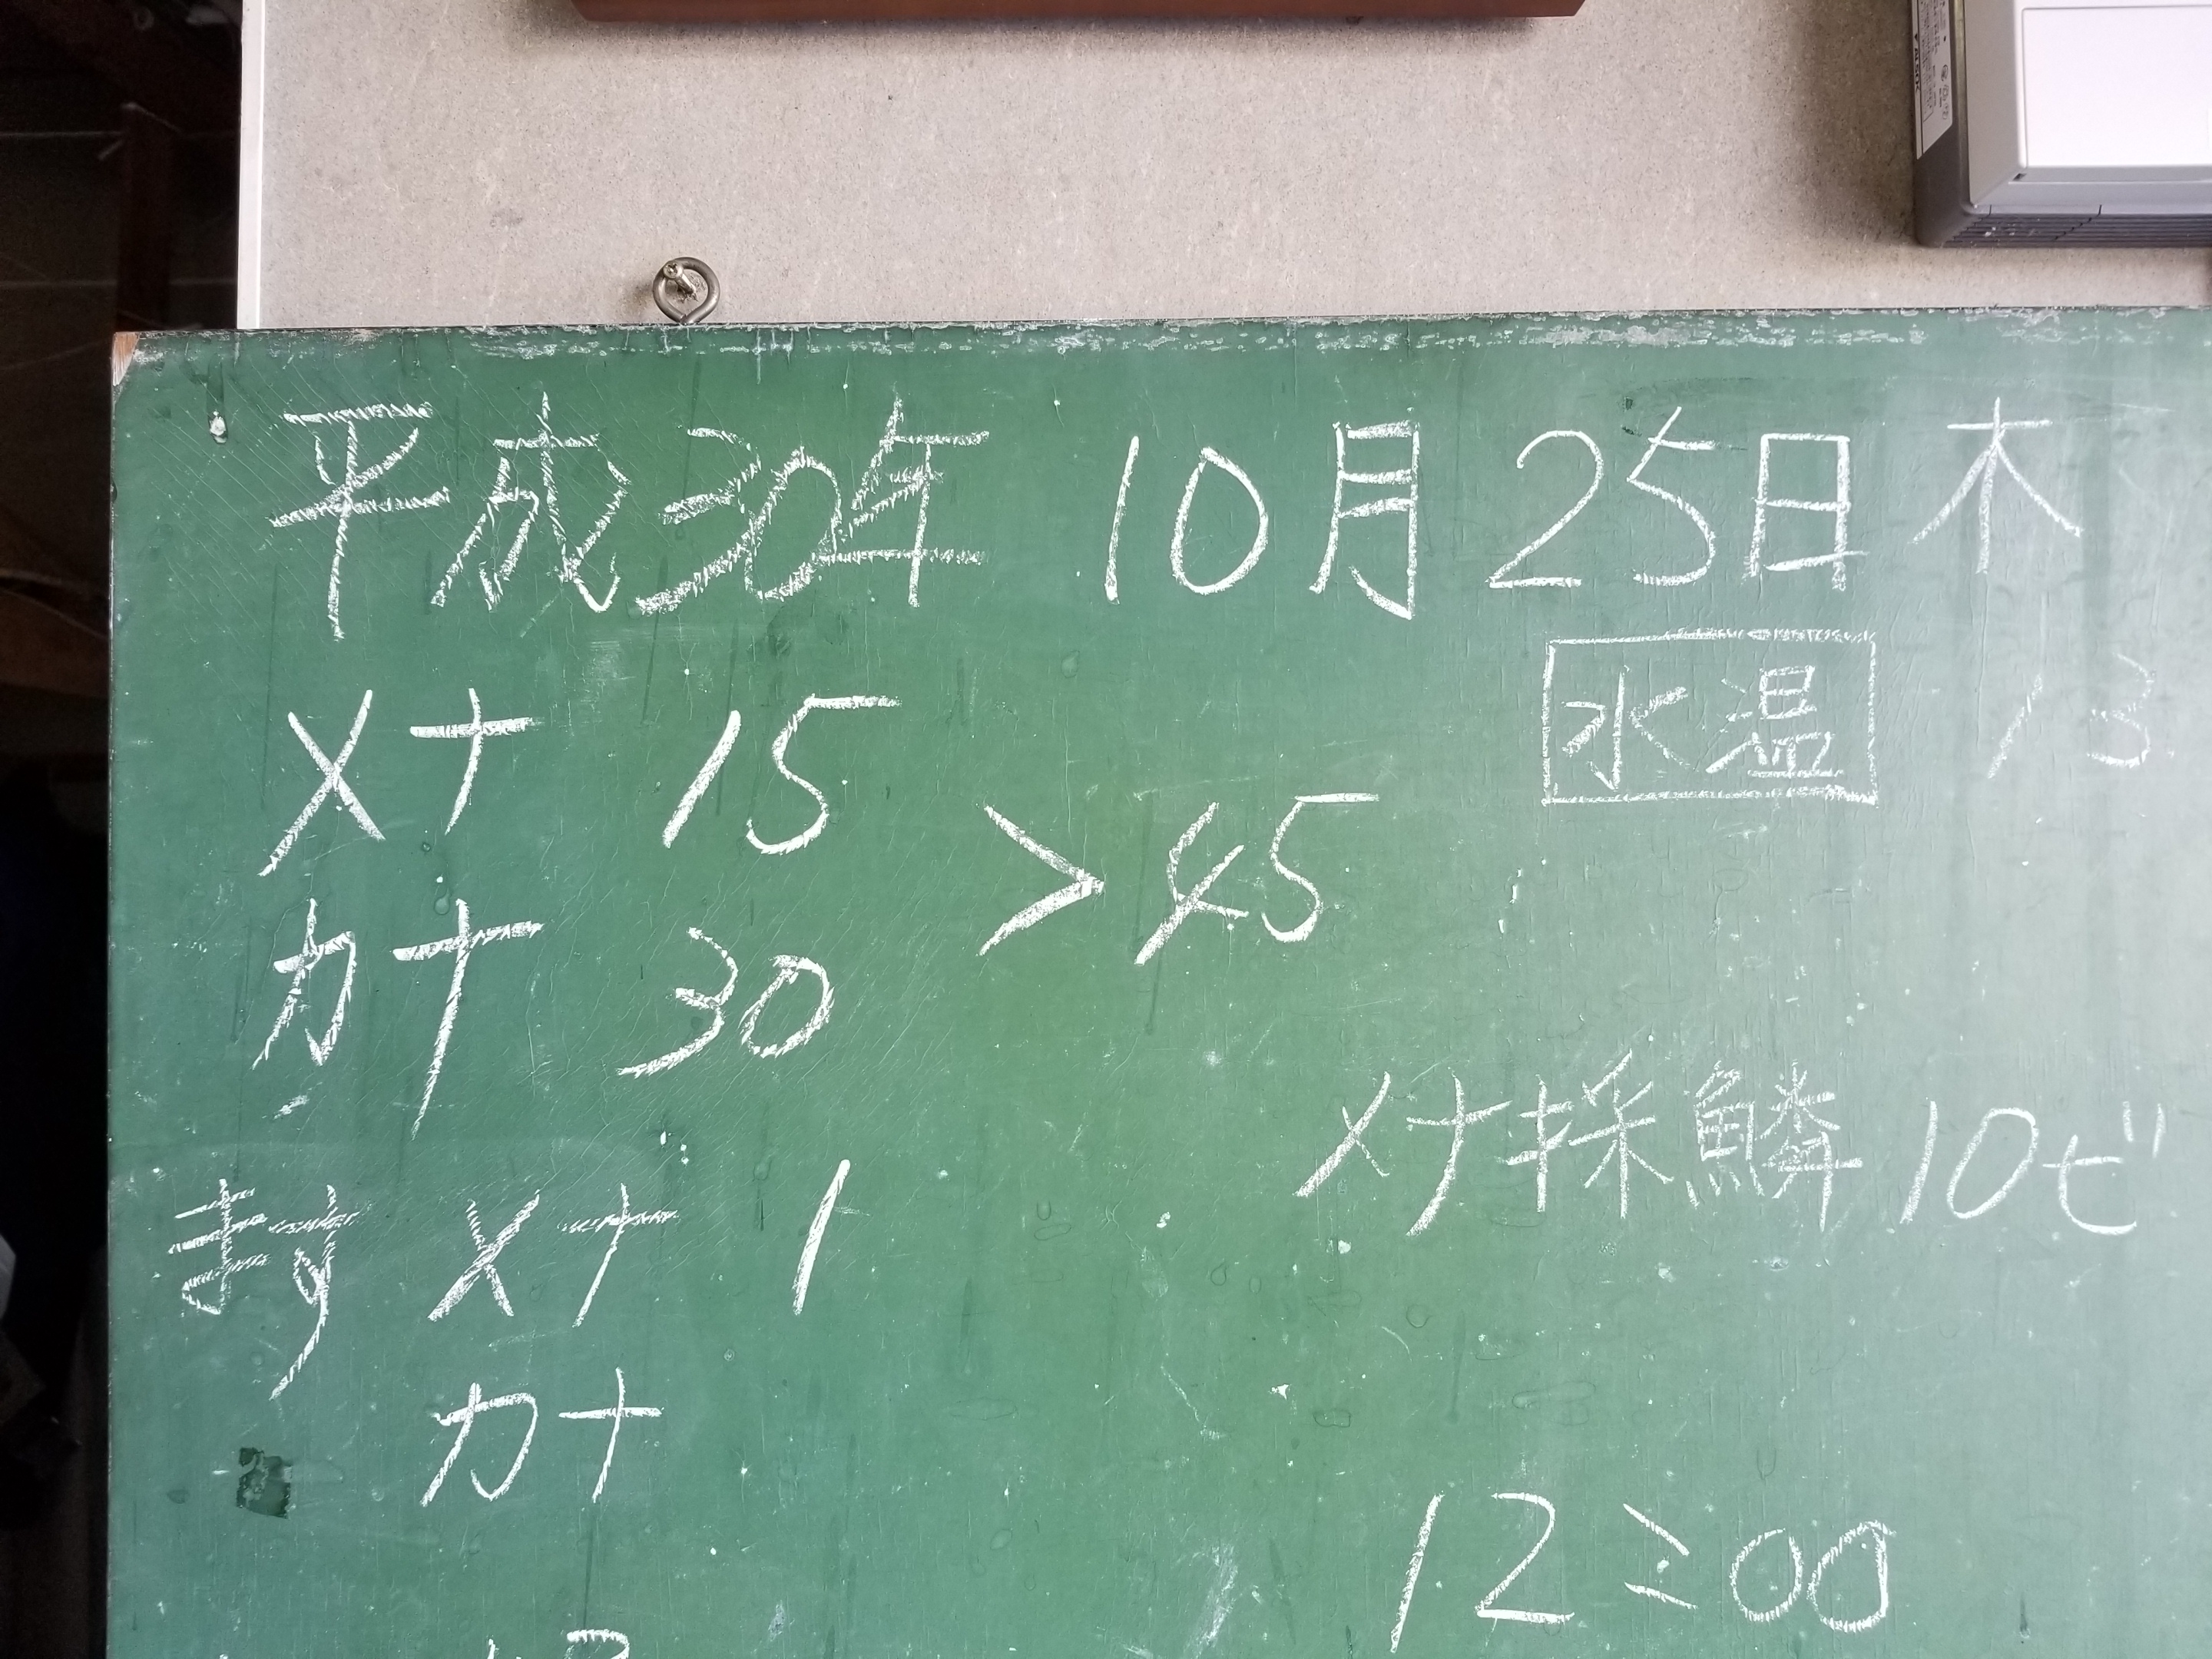 平成30年 10月25日木
水温 13
メナ 15
カナ 30
>45
メナ採鱗 10ピ
寿 メナ 1
カナ
12:00